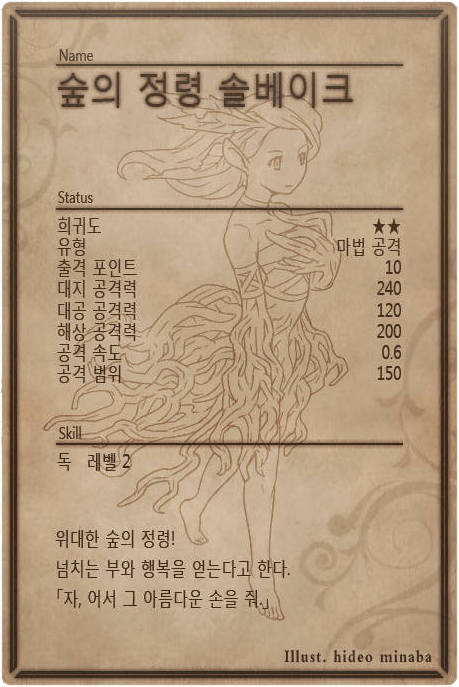 Name
숲의 정령 솔베이크
Status
희귀도 ★★
유형 마법 공격
출격 포인트 10
대지 공격력 240
대공 공격력 120
해상 공격력 200
공격 속도 0.6
공격 범위 150
Skill
독 레벨 2
위대한 숲의 정령!
넘치는 부와 행복을 얻는다고 한다.
「자, 어서 그 아름다운 손을 줘.」
Illust. hideo minaba